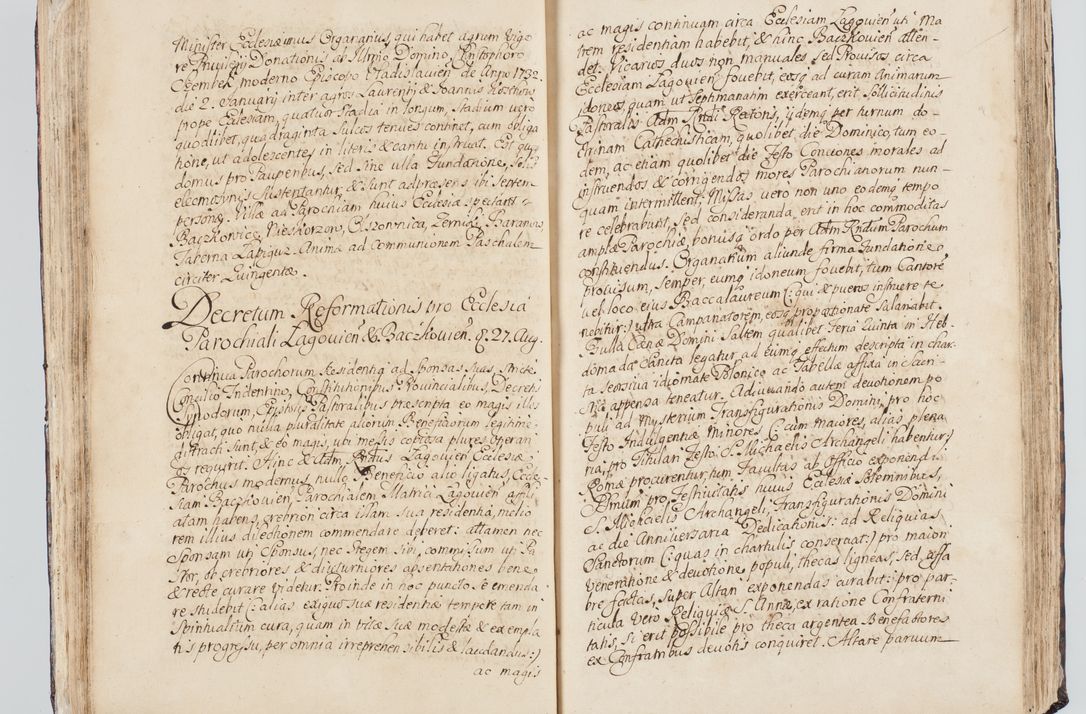 Minister Ecclesiæ unus Organarius, qui habet agrum vigo
re Privilegij Donationis ab Illmo Domino Christophoro
Szembek moderno Episcopo Vladislavien̄ de Anno 1732
die 2. Januarij inter agros Laurentij & Joannis
prope Ecclesiam, quatuor stadia in longum, stadium vero
quodlibet, quadraginta sulcos tenues continet, cum obliga
tione, ut adolescentes in literis & cantu instruat. Est quoq
domus pro Pauperibus, sed sine ulla Fundatione, solis
eleemosynis sustentantur, & sunt ad præsens ibi septem
personæ. Villæ ad Parochiam huius Ecclesiæ spectant:
Baczkowice, Nieskorzow, Olszownica, Zerniki, Baranow
Taberna Lapigus. Animæ ad Communionem Paschalem
circiter Quingentæ.
Decretum Reformationis pro Ecclesia
Parochiali Lagovien̄ & Baczkovien̄. 27. Aug.
Continua Parochorum Residentia ad Sponsas suas, Sancte
Concilio Tridentino, Constitutionibus Provincialibus, Decretis
Synodorum, Epistolis Pastoralibus præscripta eo magis illos
obligat, quo nulla pluralitate aliorum Beneficiorum legitime
distracti sunt, & eo magis, ubi messis copiosa plures operari
os requirit. Hinc & Adm. Rndus Lagovien̄ Ecclesiæ
Parochus modernus, nullo Beneficio alio ligatus, Eccle-
siam Baczkovien̄, Parochialem Matrici Lagovien̄ affili-
atam habens, crebriori circa illam sua residentia, melio
rem illius directionem commendare deberet: attamen nec
Sponsam uti Sponsus, nec Gregem sibi commissum uti Pa
stor, ob crebriores & diuturniores absentationes bene
& recte curare videtur. Proinde in hoc puncto se emenda
re studebit (: alias exiguo suæ residentiæ tempore tam in
spiritualium cura, quam in vitæ suæ modestæ & exempla
ris progressu, per omnia irreprehensibilis & laudandus:)
ac magis
ac magis continuam circa Ecclesiam Lagovien̄ uti Ma
trem residentiam habebit, & hinc Baczkovien̄ atten-
det. Vicarios duos non manuales, sed Provisos, circa
Ecclesiam Lagovien̄ fovebit, eosq ad curam Animarum
idoneos, quam ut septimanatim exerceant, erit sollicitudinis
Pastoralis Adm Rndi Rectoris, ijdemq per turnum do-
ctrinam Cathechisticam, quolibet die Dominico, tum eo-
dem, ac etiam quolibet die Festo Conciones morales ad
instruendos & corrigendos mores Parochianorum nun-
quam intermittent: Missas vero non uno eodemq tempo
re celebrabunt, sed consideranda erit in hoc commoditas
amplæ Parochiæ, bonusq ordo per Adm Rndum Parochum
constituendus. Organarium aliunde firma Fundatione
provisum, semper, eumq idoneum fovebit, tum Cantore
vel loco eius Baccalaureum (: qui & pueros instruere te
nebitur:) ultra Campanatorem, eosq proportionate salariabit.
Bulla Cœnæ Domini saltem qualibet Feria Quinta in Heb
domada Sancta legatur, ad eumq effectum descripta in char
ta sensiva idiomate Polonico ac Tabellæ affixa in Sacri-
stia appensa teneatur. Adiuvando autem devotionem po
puli ad Mysterium Transfigurationis Domini, pro hoc
Festo Indulgentiæ minores (: cum maiores, alias plena
riæ, pro Titulari Festo S. Michaelis Archangeli habentur:)
Romæ procurentur, tum Facultas ab Officio exponendi
Ssmum pro Festivitatis huius Ecclesiæ Solemnibus,
S. Michaelis Archangeli, Transfigurationis Domini
ac die Anniversaria Dedicationis: ad Reliquias
Sanctorum (: quas in chartulis conservat:) pro maiori
veneratione & devotione populi, thecas ligneas, sed affa
bre factas, super Altari exponendas curabit: pro par-
ticula vero Reliquiæ S. Annæ, ex ratione Confraterni
tatis, si erit possibile pro theca argentea Benefactores
ex Confratribus devotis conquiret. Altare parvum